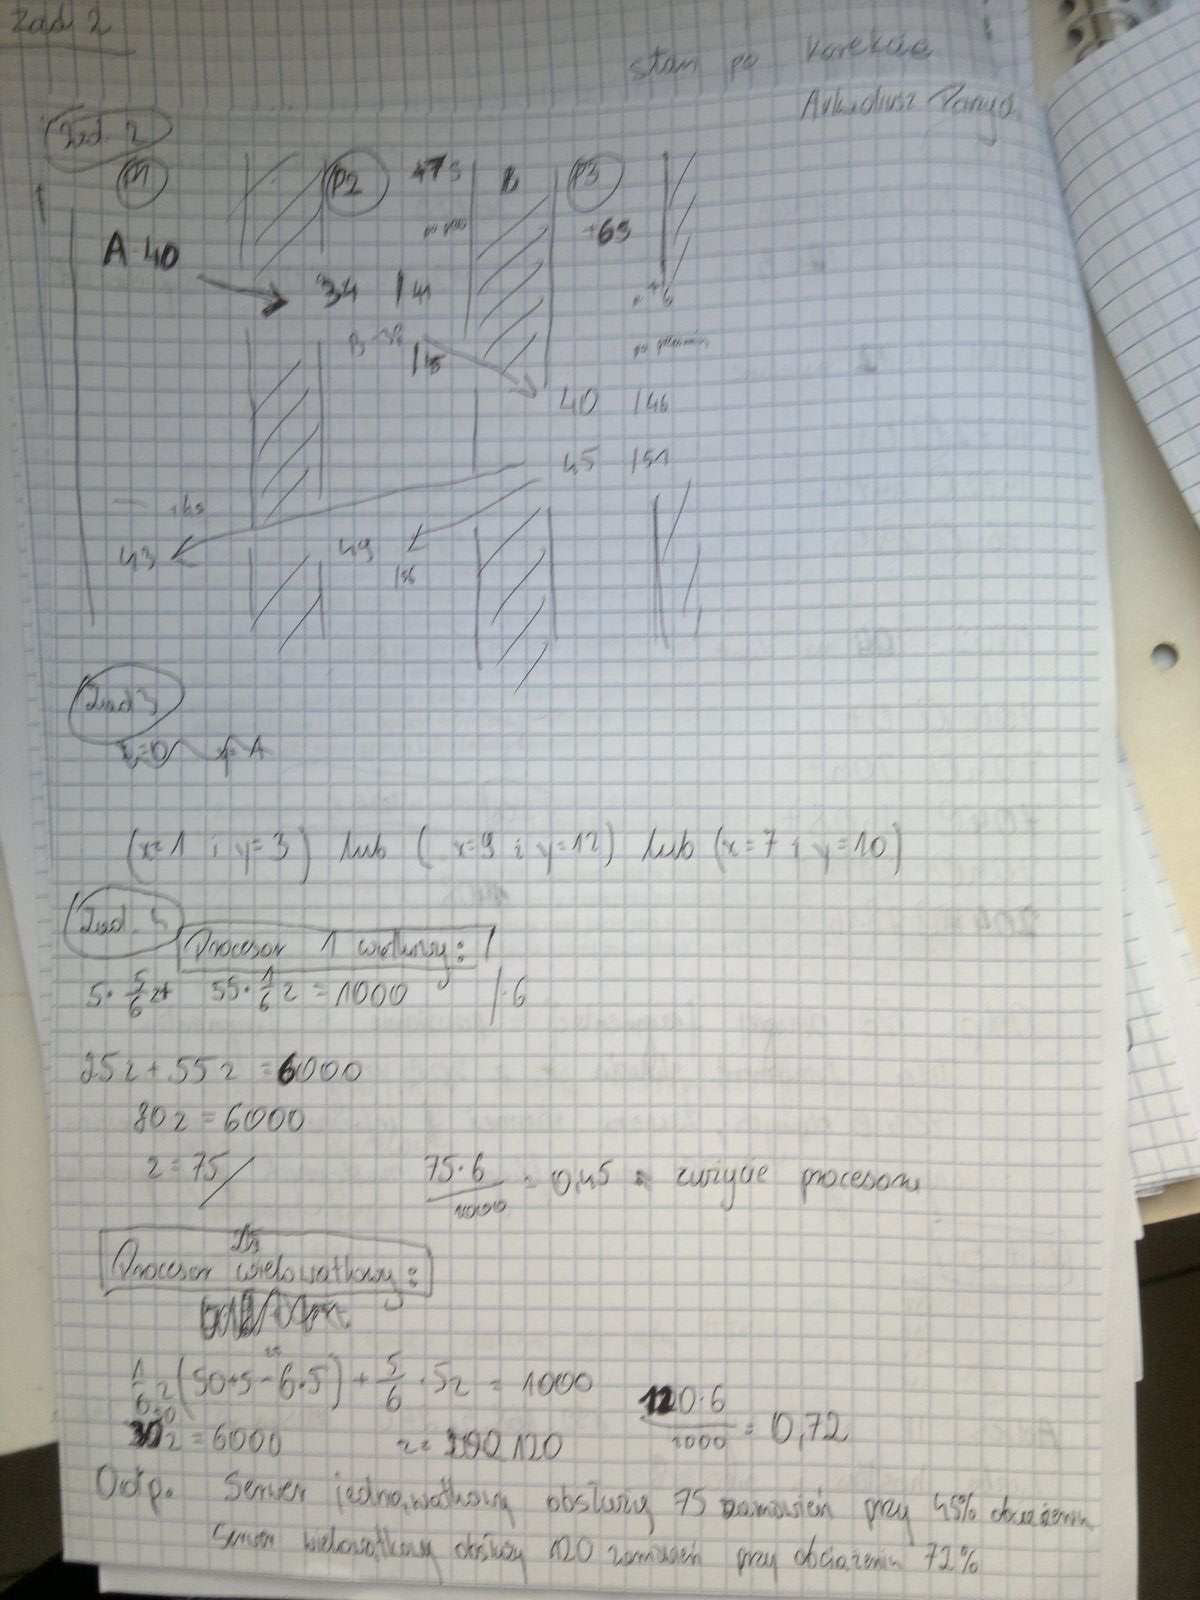 Zad 2
stan po korekcie
Arkadiusz
Zad. 2
P1 P2 +7s B P3
+6s
A 40
34 | 41
+6
B 38
40 | 46
45 | 51
43
49
| 56
Zad 3
(x=1 i y=3) lub (x=9 i y=12) lub (x=7 i y=10)
Zad.
Procesor 1 wątkowy:
5·5/6 z + 55·1/6 z = 1000 /·6
25z + 55z = 6000
80z = 6000
z = 75
75·6/1000 = 0,45 zużycie procesora
Procesor wielowątkowy:
1/6 z (50+5-6·5) + 5/6 · 5z = 1000
z = 6000 z = 120
120·6/1000 = 0,72
Odp. Serwer jednowątkowy obsłuży 75 zamówień przy 45% obciążeniu
Serwer wielowątkowy obsłuży 120 zamówień przy obciążeniu 72%